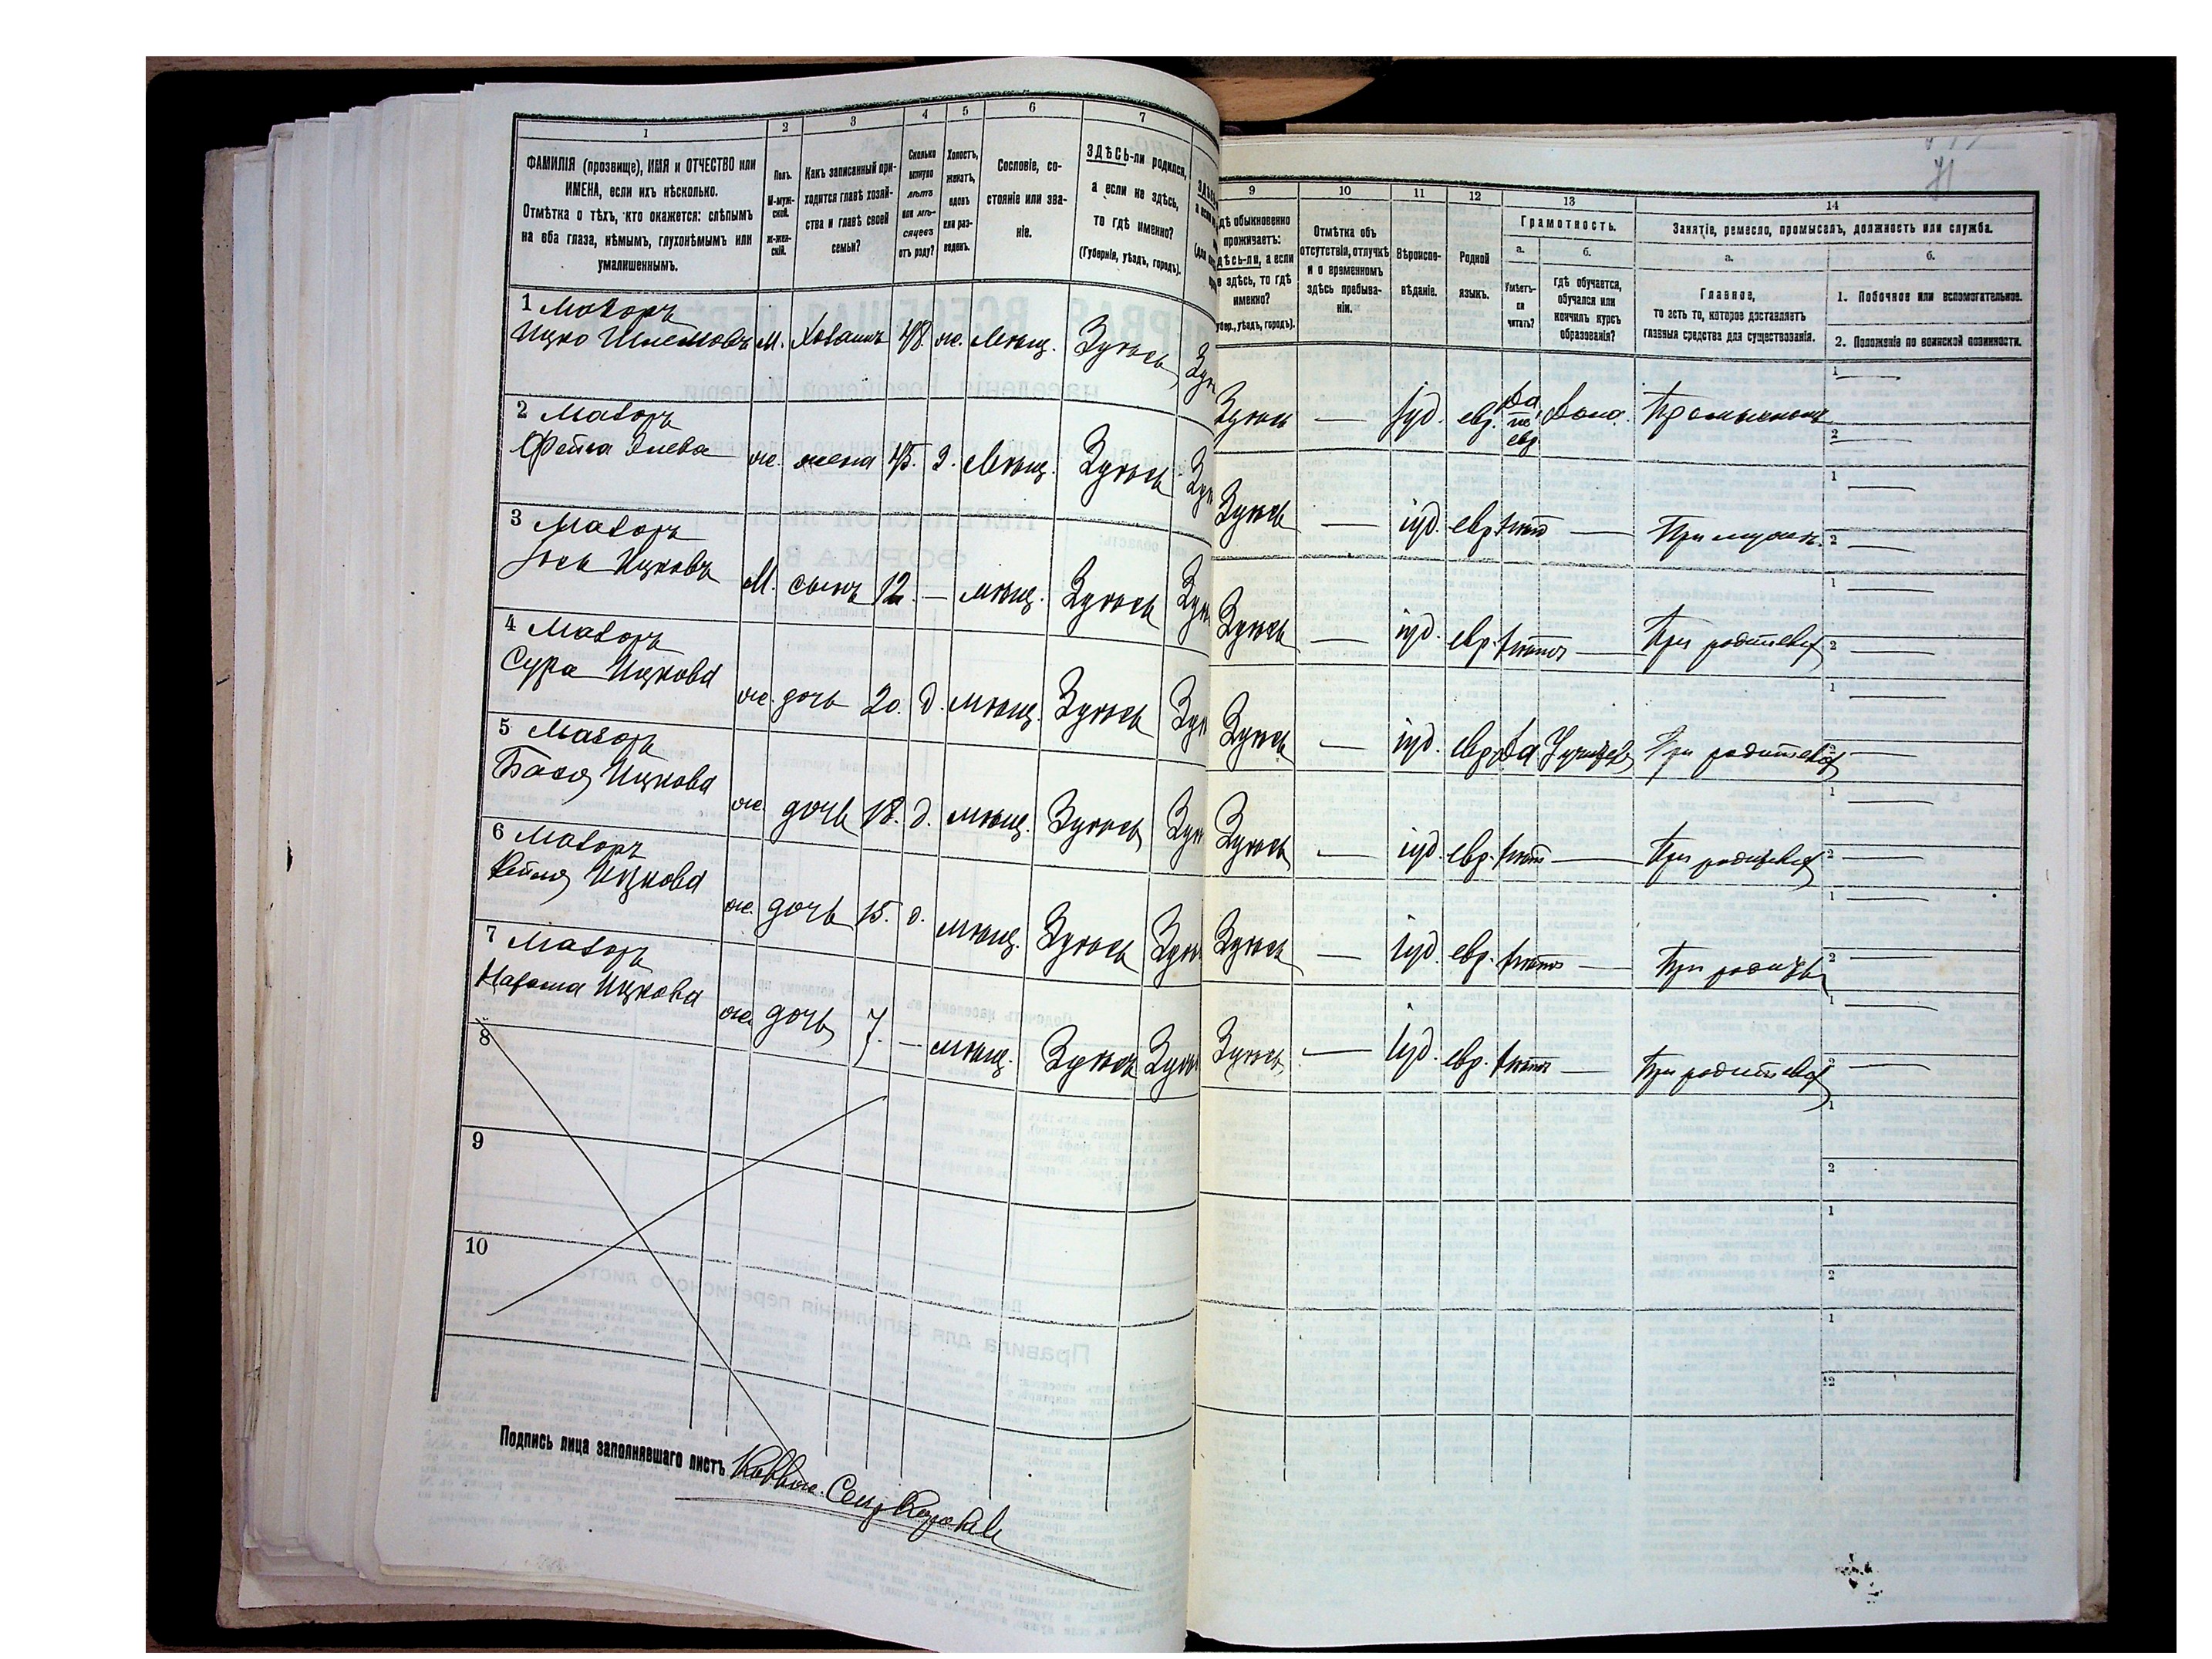 1
2
3
4
5
6
7
ФАМИЛІЯ (прозвище), ИМЯ и ОТЧЕСТВО или
ИМЕНА, если ихъ нѣсколько.
Отмѣтка о тѣхъ, кто окажется: слѣпымъ
на оба глаза, нѣмымъ, глухонѣмымъ или
умалишеннымъ.
Полъ.
М-муж-
ской.
ж-жен-
скій.
Какъ записанный при-
ходится главѣ хозяй-
ства и главѣ своей
семьи?
Сколько
минуло
лѣтъ
или мѣ-
сяцевъ
отъ роду?
Холостъ,
женатъ,
вдовъ
или раз-
веденъ.
Сословіе, со-
стояніе или зва-
ніе.
ЗДѢСЬ-ли родился,
а если не здѣсь,
то гдѣ именно?
(Губернія, уѣздъ, городъ).
1 Мазоръ
Ицко Шлемовъ м. Хозяинъ 48. ж. Мѣщ. Здѣсь
2 Мазоръ
Фейга Элева ж. жена 45. З. Мѣщ. Здѣсь
3 Мазоръ
Іось Ицковъ М. сынъ 12. — мѣщ. Здѣсь
4 Мазоръ
Сура Ицкова ж. дочь 20. д. мѣщ. Здѣсь
5 Мазоръ
Бася Ицкова ж. дочь 18. д. мѣщ. Здѣсь
6 Мазоръ
Ицкова ж. дочь 15. д. мѣщ. Здѣсь
7 Мазоръ
Ицкова ж. дочь 7. — мѣщ. Здѣсь
8
9
10
Подпись лица заполнявшаго листъ
9
10
11
12
13
14
гдѣ обыкновенно
проживаетъ:
здѣсь-ли, а если
не здѣсь, то гдѣ
именно?
(Губер., уѣздъ, городъ).
Отмѣтка объ
отсутствіи, отлучкѣ
и о временномъ
здѣсь пребыва-
ніи.
Вѣроиспо-
вѣданіе.
Родной
языкъ.
Грамотность.
а.
б.
Умѣетъ-
ли
читать?
гдѣ обучается,
обучался или
кончилъ курсъ
образованія?
Занятіе, ремесло, промыселъ, должность или служба.
а.
б.
Главное,
то есть то, которое доставляетъ
главныя средства для существованія.
1. Побочное или вспомогательное.
2. Положеніе по воинской повинности.
Здѣсь — Іуд. евр. Да по евр. Дома.
1
2
Здѣсь — іуд. евр. нѣтъ — При мужѣ.
1
2
Здѣсь — іуд. евр. нѣтъ — При родителяхъ
1
2
Здѣсь — іуд. евр. Да При родителяхъ
1
2
Здѣсь — іуд. евр. нѣтъ — При родителяхъ
1
2
Здѣсь — Іуд. евр. нѣтъ — При родителяхъ
1
2
Здѣсь — Іуд. евр. нѣтъ — При родителяхъ
1
2
1
2
1
2
1
2